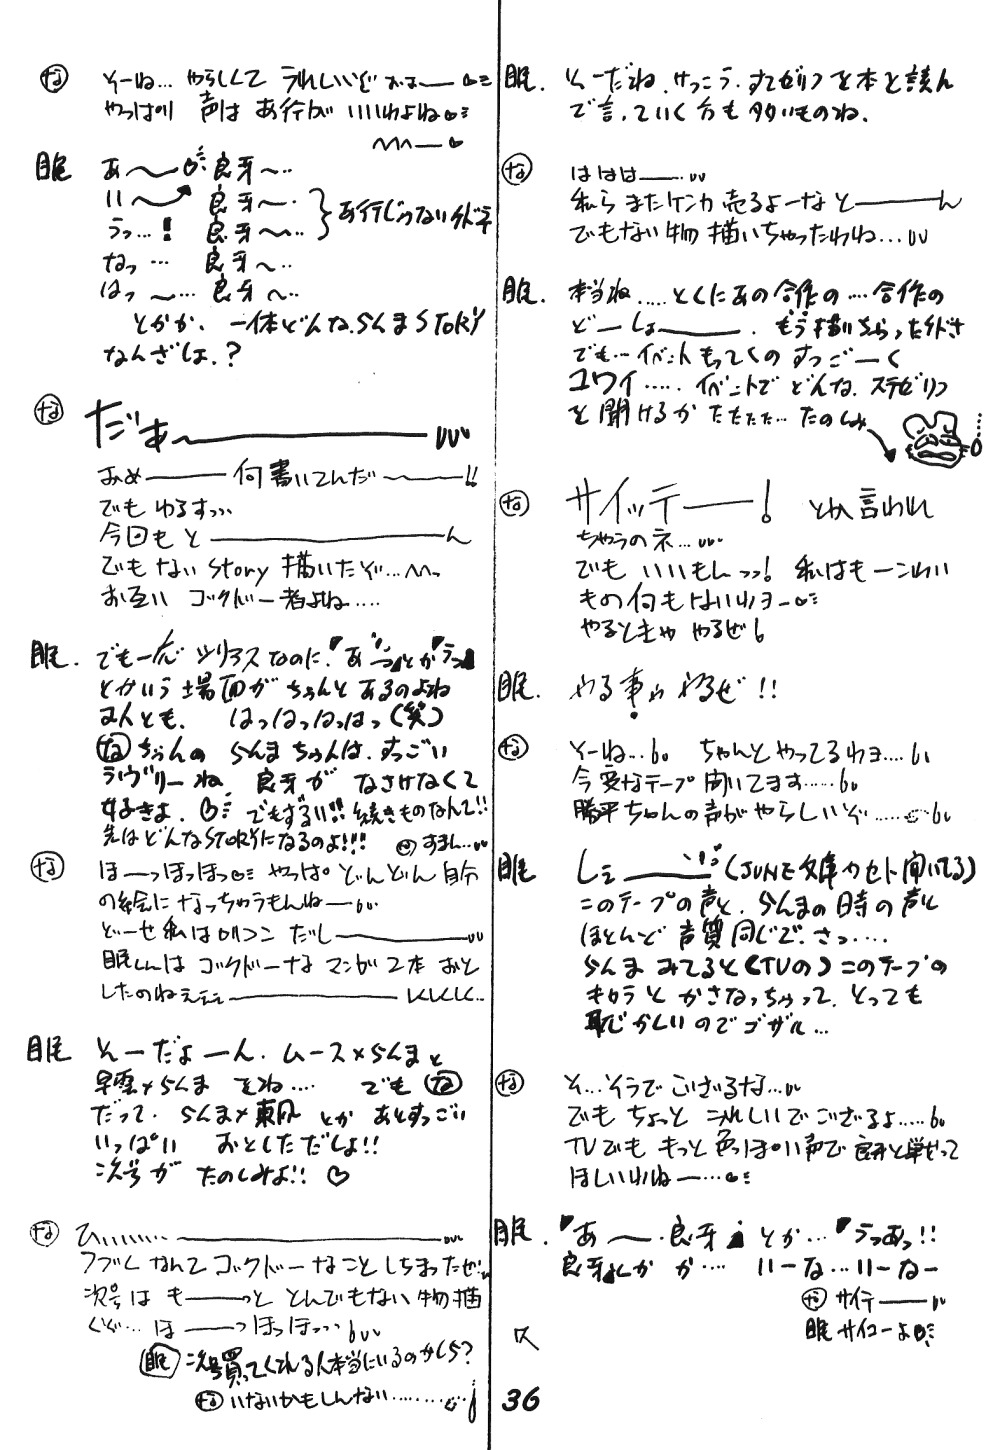 眠. そーだね.けっこう.すてゼリフを本と読ん
で言.ていく方も多いものね.
な ははは——…
私らまたケンカ売るよーなと———ん
でもない物描いちゃったわね…
眠. 本当ね.....とくにあの合作の…合作の
どーしよ———.もう描いちらったけどさ
でも…イベントもってくのすっごーく
コワイ.....イベントでどんな.ステゼリフ
を聞けるかたたたた…たのしみ
な サイッテ——! とか言われ
ちゃうのネ…
でもいいもんっっ! 私はもーこわい
もの何もないわヨー
やるときゃやるぜ
眠. やる事ゃやるぜ!!
な そーね… ちゃんとやってるわョ....
今変なテープ聞いてます......
勝平ちゃんの声がやらしいぞ......
眠 しー——(JUNE文庫カセット聞いてる)
このテープの声と.らんまの日時の声と
ほとんど音質同じで.さっ....
らんまみてると(TVの)このテープの
キャラとかさなっちゃって.とっても
恥かしいのでゴザル...
な そ…そうでございるな…
でもちょっとうれしいでございるよ.....
TVでももっと色っぽい声で良牙と戦って
ほしいわねー…
眠. 『あ〜.良牙』とか…『うっあっ!!
良牙』とかか....いーな…いーなー
な サイテー——
眠 サイコーよ
な そーね… やらしくてうれしいぞおおー—
やっぱり声はあ行がいいわよね
眠 あ〜—良牙〜…
い〜 良牙〜.
うっ…! 良牙〜… }あ行じゃないけど
なっ… 良牙〜…
はっ〜… 良牙〜…
とかか.一体どんな.らんまSTORY
なんざしょ.?
な だぁ〜————
あぁ——何書いてんだ〜——!!
でもゆるすっ…
今回もと————ん
でもないstory描いたぞ…
お互いゴックドー者よね....
眠. でもーん シリアスなのに.『あっ』とか『うっ』
とかいう場面がちゃんとあるのよね
まんとも. はっはっはっはっ(笑)
なちゃんのらんまちゃんは.すっごい
ラヴリーね.良牙がなさけなくて
好きよ.♡でもずるい!!続きものなんて!!
先はどんなSTORYになるのよ!!! すまん…
な ほーっほっほっ やっぱどんどん自分
の絵になっちゃうもんねー…
どーせ私はロリコンだし———
眠しんはゴックドーなマンガ2本おと
したのねぇ————ししし…
眠 そーだよーん.ムース×らんまと
早雲×らんまをね.... でもな
だって.らんま×東風とかあとすっごい
いっぱいおとしただしょ!!
次号がたのしみよ!!♡
な ひぃ…………————
フブんなんてゴックドーなことしちまったぜ!
次号はも——っととんでもない物描
くぞ…ほ——っほっほっ…
眠 次号買ってくれる人本当にいるのかしら?
な いないかもしんない..........
36